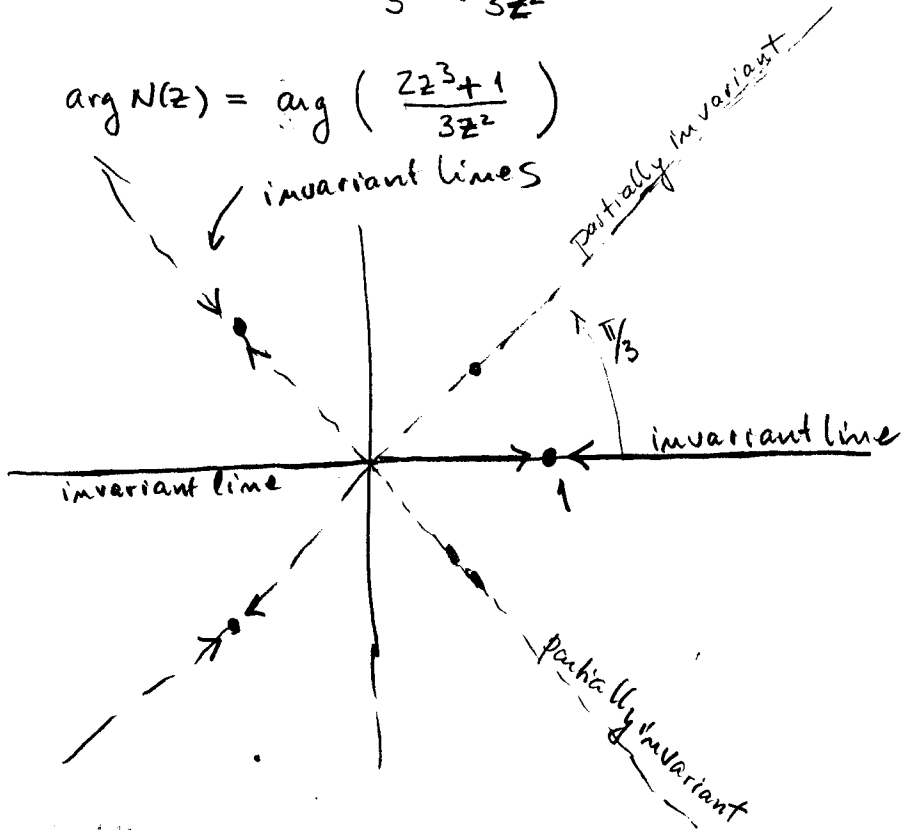 3 3z²
arg N(z) = arg ( (2z³+1) / (3z²) )
invariant lines
partially invariant
π/3
invariant line
invariant line
1
partially invariant